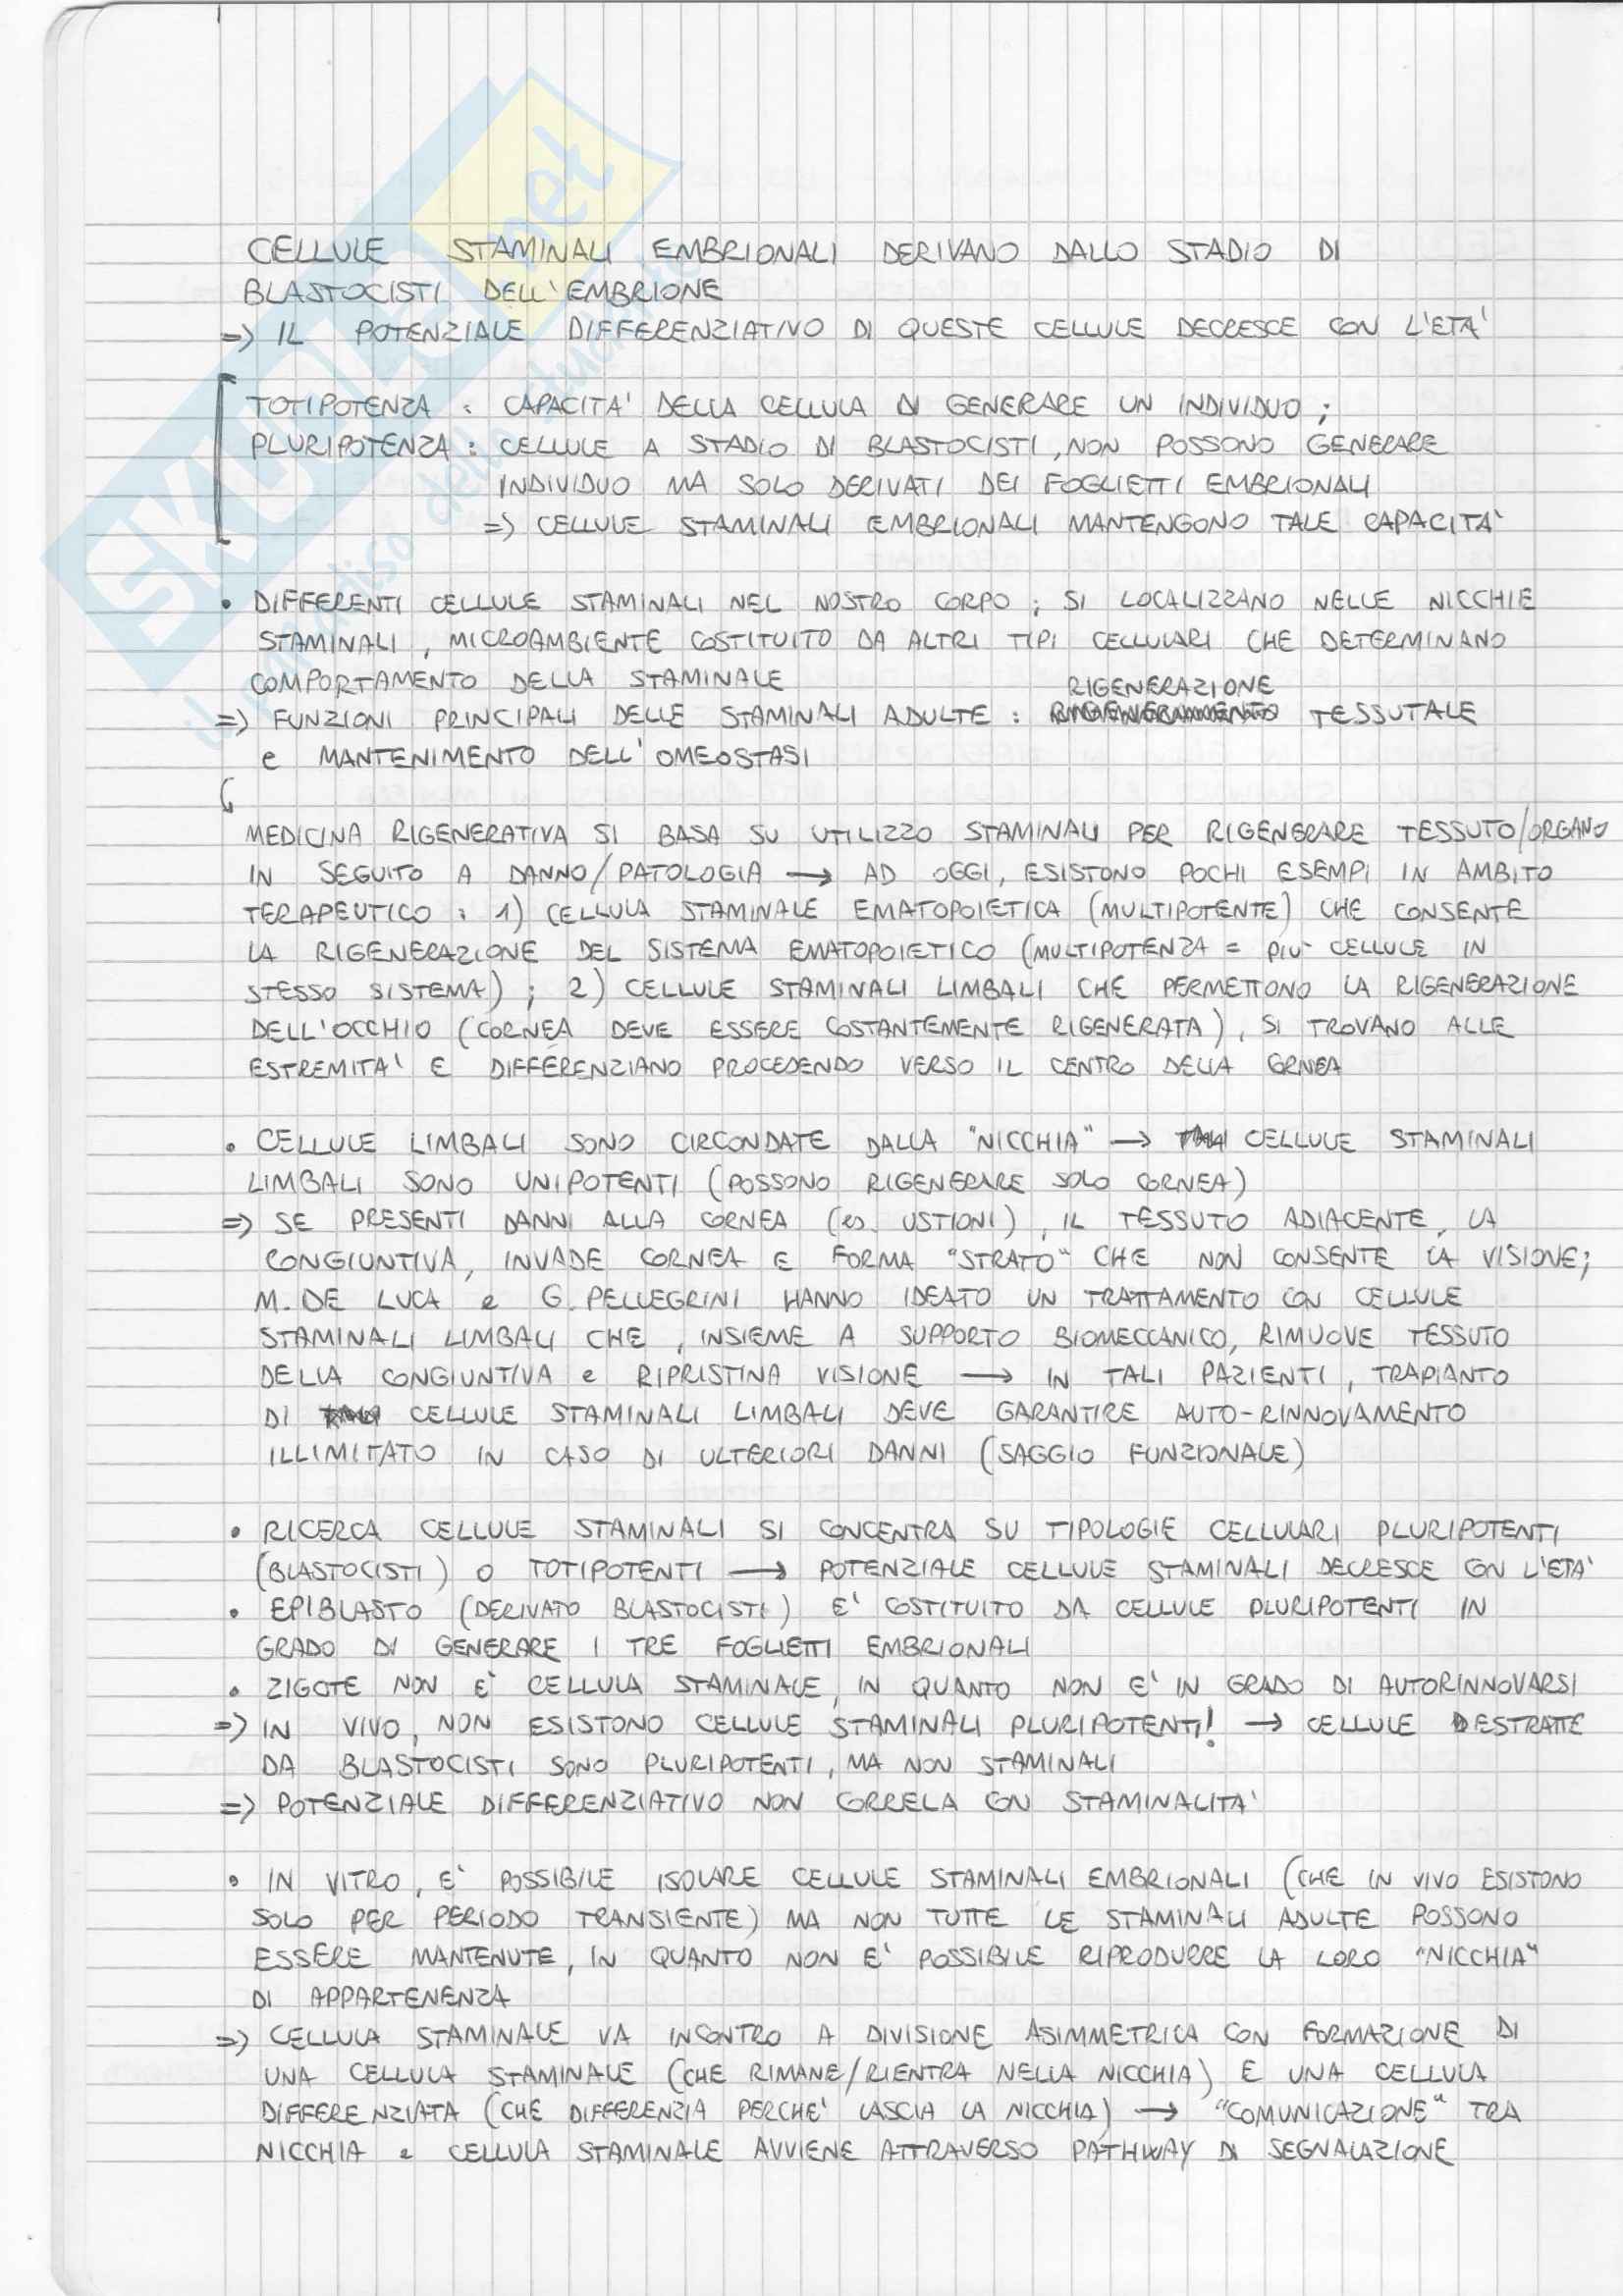 CELLULE STAMINALI EMBRIONALI DERIVANO DALLO STADIO DI
BLASTOCISTI DELL'EMBRIONE
=> IL POTENZIALE DIFFERENZIATIVO DI QUESTE CELLULE DECRESCE CON L'ETA'
TOTIPOTENZA : CAPACITA' DELLA CELLULA DI GENERARE UN INDIVIDUO ;
PLURIPOTENZA : CELLULE A STADIO DI BLASTOCISTI, NON POSSONO GENERARE
INDIVIDUO MA SOLO DERIVATI DEI FOGLIETTI EMBRIONALI
=> CELLULE STAMINALI EMBRIONALI MANTENGONO TALE CAPACITA'
• DIFFERENTI CELLULE STAMINALI NEL NOSTRO CORPO ; SI LOCALIZZANO NELLE NICCHIE
STAMINALI, MICROAMBIENTE COSTITUITO DA ALTRI TIPI CELLULARI CHE DETERMINANO
COMPORTAMENTO DELLA STAMINALE
=> FUNZIONI PRINCIPALI DELLE STAMINALI ADULTE : RIGENERAZIONE TESSUTALE
e MANTENIMENTO DELL'OMEOSTASI
MEDICINA RIGENERATIVA SI BASA SU UTILIZZO STAMINALI PER RIGENERARE TESSUTO/ORGANO
IN SEGUITO A DANNO/PATOLOGIA → AD OGGI, ESISTONO POCHI ESEMPI IN AMBITO
TERAPEUTICO : 1) CELLULA STAMINALE EMATOPOIETICA (MULTIPOTENTE) CHE CONSENTE
LA RIGENERAZIONE DEL SISTEMA EMATOPOIETICO (MULTIPOTENZA = PIU' CELLULE IN
STESSO SISTEMA) ; 2) CELLULE STAMINALI LIMBALI CHE PERMETTONO LA RIGENERAZIONE
DELL'OCCHIO (CORNEA DEVE ESSERE COSTANTEMENTE RIGENERATA), SI TROVANO ALLE
ESTREMITA' E DIFFERENZIANO PROCEDENDO VERSO IL CENTRO DELLA CORNEA
• CELLULE LIMBALI SONO CIRCONDATE DALLA "NICCHIA" → CELLULE STAMINALI
LIMBALI SONO UNIPOTENTI (POSSONO RIGENERARE SOLO CORNEA)
=> SE PRESENTI DANNI ALLA CORNEA (es. USTIONI), IL TESSUTO ADIACENTE, LA
CONGIUNTIVA, INVADE CORNEA E FORMA "STRATO" CHE NON CONSENTE LA VISIONE;
M. DE LUCA e G. PELLEGRINI HANNO IDEATO UN TRATTAMENTO CON CELLULE
STAMINALI LIMBALI CHE, INSIEME A SUPPORTO BIOMECCANICO, RIMUOVE TESSUTO
DELLA CONGIUNTIVA e RIPRISTINA VISIONE → IN TALI PAZIENTI, TRAPIANTO
DI CELLULE STAMINALI LIMBALI DEVE GARANTIRE AUTO-RINNOVAMENTO
ILLIMITATO IN CASO DI ULTERIORI DANNI (SAGGIO FUNZIONALE)
• RICERCA CELLULE STAMINALI SI CONCENTRA SU TIPOLOGIE CELLULARI PLURIPOTENTI
(BLASTOCISTI) O TOTIPOTENTI → POTENZIALE CELLULE STAMINALI DECRESCE CON L'ETA'
• EPIBLASTO (DERIVATO BLASTOCISTI) E' COSTITUITO DA CELLULE PLURIPOTENTI IN
GRADO DI GENERARE I TRE FOGLIETTI EMBRIONALI
• ZIGOTE NON E' CELLULA STAMINALE, IN QUANTO NON E' IN GRADO DI AUTORINNOVARSI
=> IN VIVO, NON ESISTONO CELLULE STAMINALI PLURIPOTENTI! → CELLULE ESTRATTE
DA BLASTOCISTI SONO PLURIPOTENTI, MA NON STAMINALI
=> POTENZIALE DIFFERENZIATIVO NON CORRELA CON STAMINALITA'
• IN VITRO, E' POSSIBILE ISOLARE CELLULE STAMINALI EMBRIONALI (CHE IN VIVO ESISTONO
SOLO PER PERIODO TRANSIENTE) MA NON TUTTE LE STAMINALI ADULTE POSSONO
ESSERE MANTENUTE, IN QUANTO NON E' POSSIBILE RIPRODURRE LA LORO "NICCHIA"
DI APPARTENENZA
=> CELLULA STAMINALE VA INCONTRO A DIVISIONE ASIMMETRICA CON FORMAZIONE DI
UNA CELLULA STAMINALE (CHE RIMANE/RIENTRA NELLA NICCHIA) E UNA CELLULA
DIFFERENZIATA (CHE DIFFERENZIA PERCHE' LASCIA LA NICCHIA) → "COMUNICAZIONE" TRA
NICCHIA e CELLULA STAMINALE AVVIENE ATTRAVERSO PATHWAY DI SEGNALAZIONE